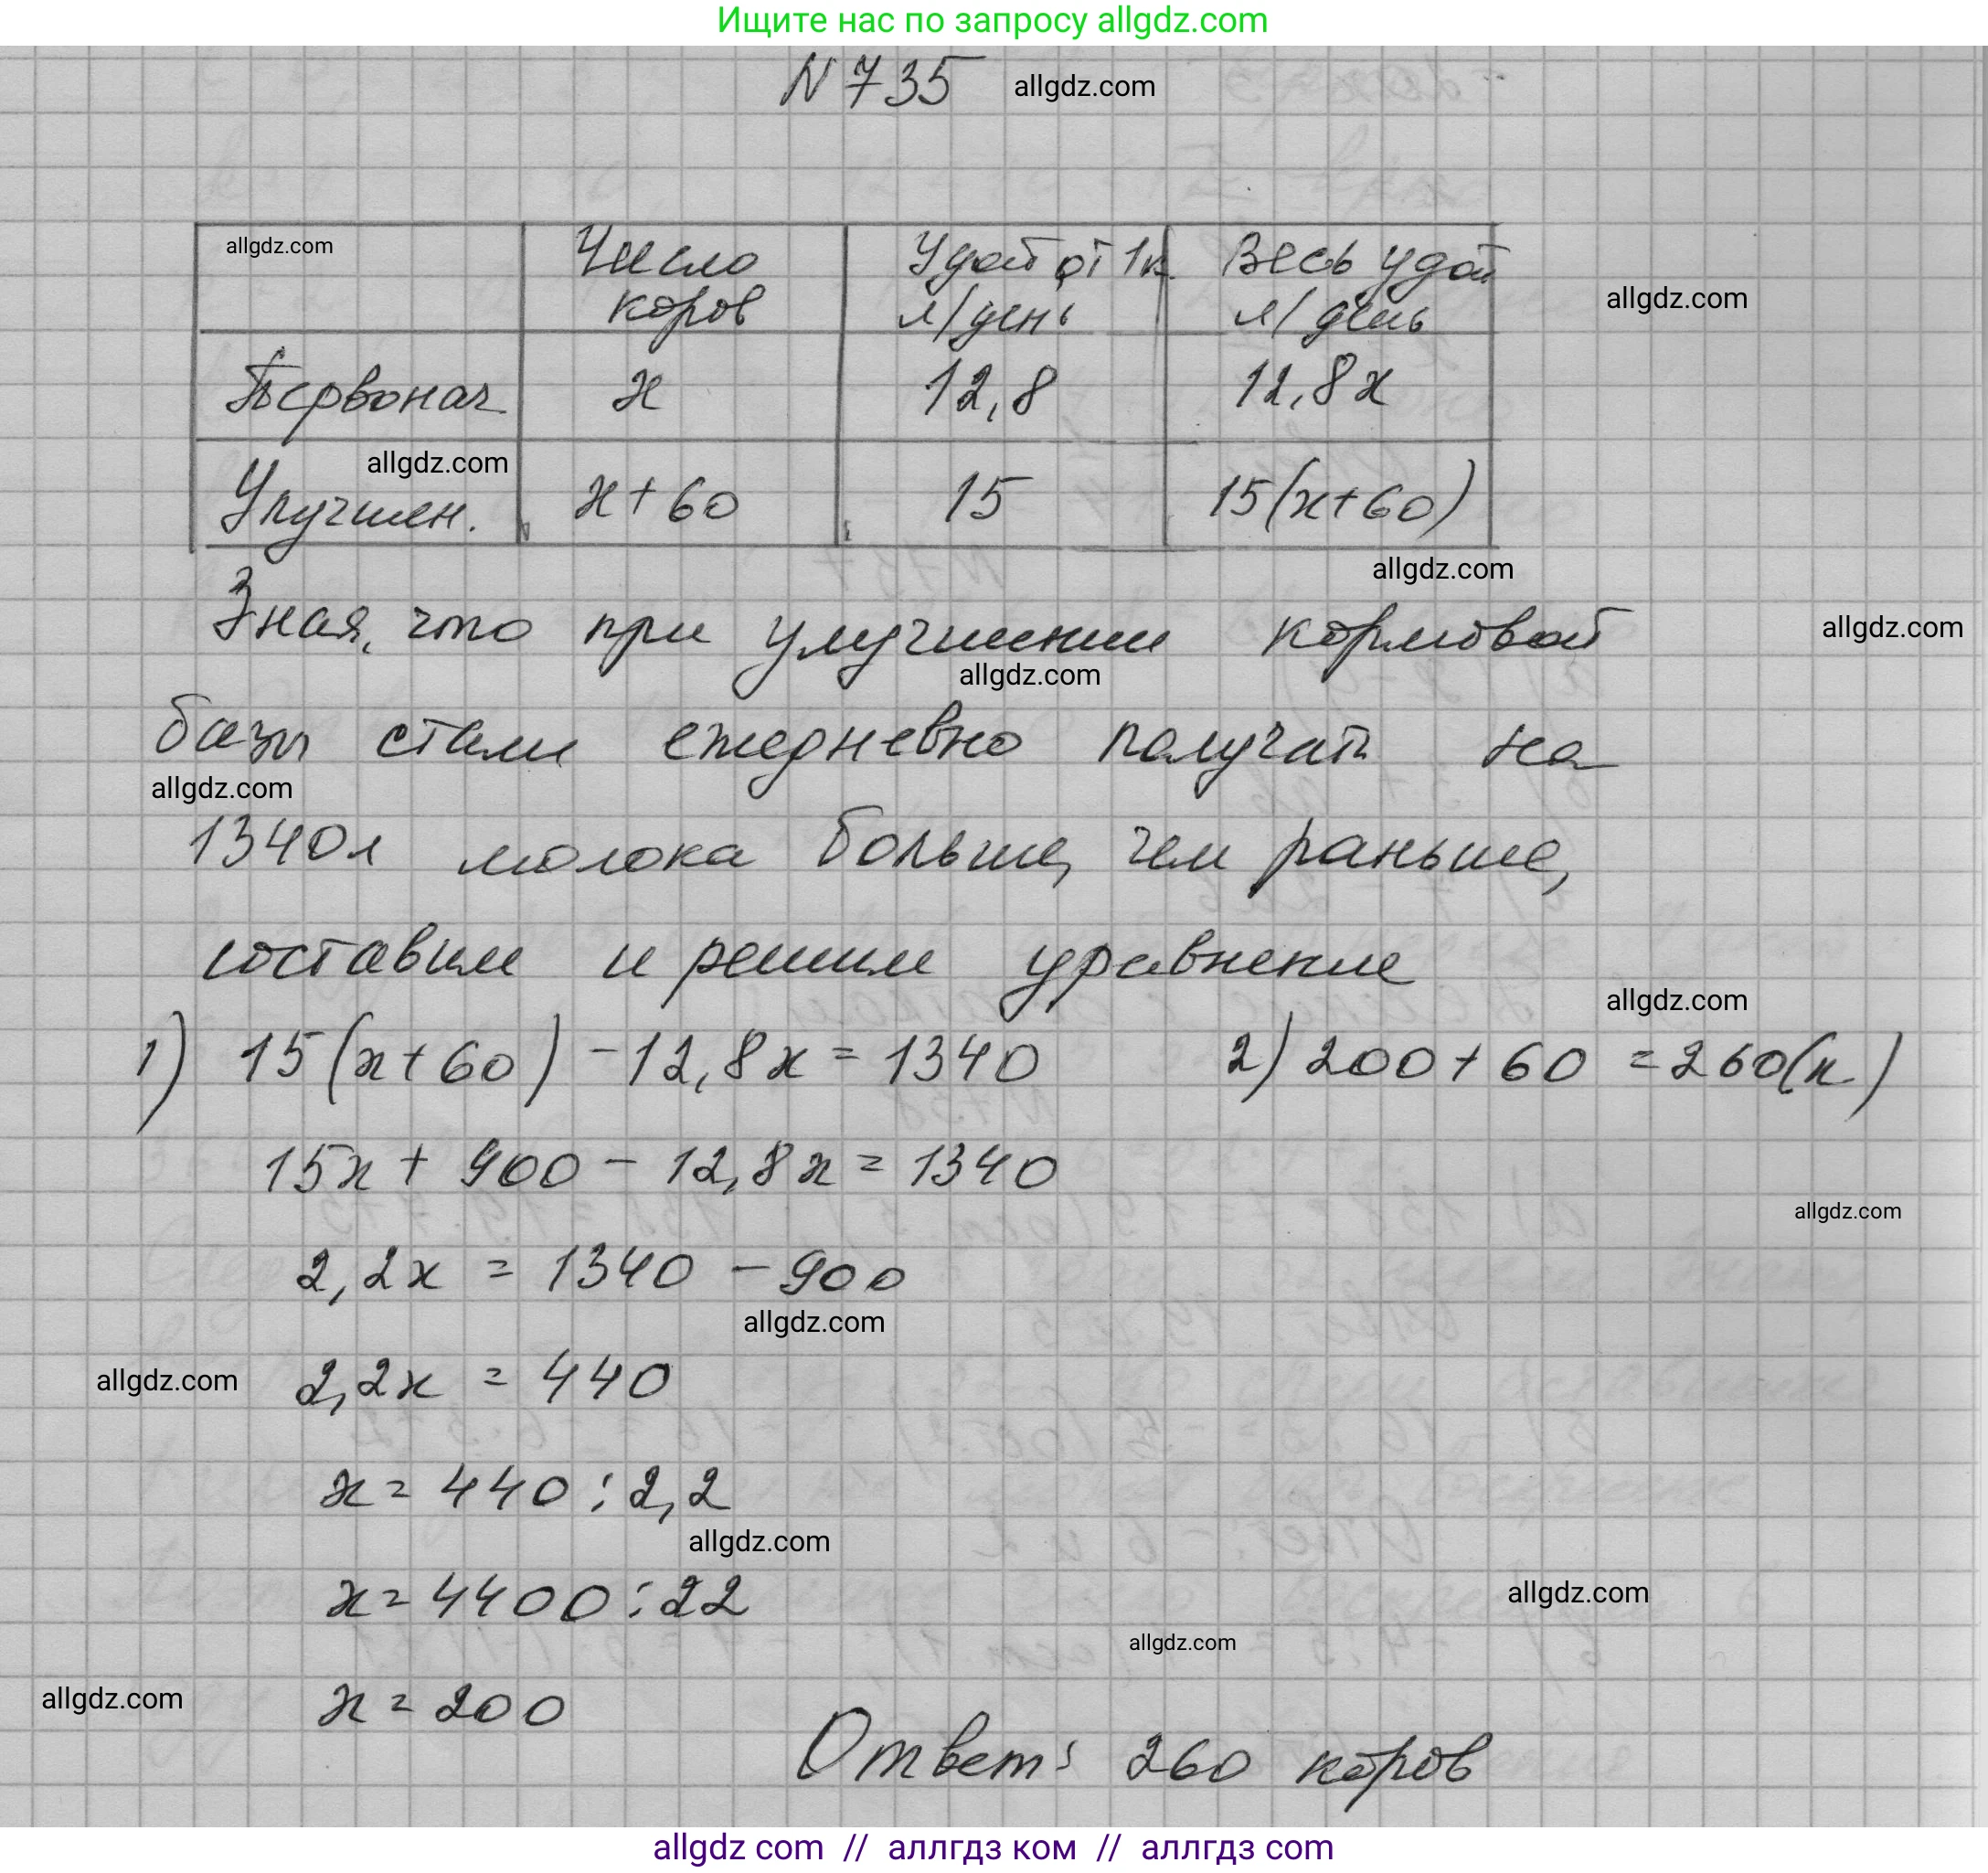 Ищите нас по запросу allgdz.com
N 735 allgdz.com
allgdz.com Число коров Удой от 1к. л/день Весь удой л/день
allgdz.com
Первонач. x 12,8 12,8x
allgdz.com
Улучшен. x+60 15 15(x+60)
allgdz.com
Зная, что при улучшении кормовой
allgdz.com
allgdz.com
базы стали ежедневно получать на
allgdz.com
1340л молока больше, чем раньше,
составим и решим уравнение
allgdz.com
1) 15(x+60) - 12,8x = 1340 2) 200 + 60 = 260(к.)
15x + 900 - 12,8x = 1340
allgdz.com
2,2x = 1340 - 900
allgdz.com
allgdz.com 2,2x = 440
x = 440 : 2,2
allgdz.com
x = 4400 : 22 allgdz.com
allgdz.com
allgdz.com x = 200
Ответ: 260 коров
allgdz com // аллгдз ком // аллгдз com